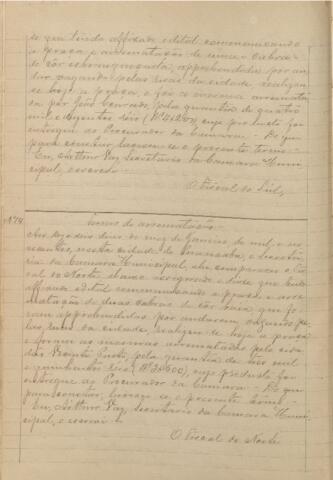 do que tendo affixado edital communicando
a praça e arrematação de uma cabra
de côr esbranquiçada, apprehendida por an-
dar vagando pelas ruas da cidade, realizou-
se hoje a praça, e foi a mesma arremata-
da por João Conrado, pela quantia de quatro
mil e duzentos réis (Rs 4$200), cujo producto foi
entregue ao Procurador da Camara. De que
para constar lavrou-se o presente termo.
Eu, Arthur Vaz, Secretario da Camara Muni-
cipal, escrevi.
O Fiscal do Sul,
Nº 74
Termo de arrematação
Aos dezoito dias do mez de Janeiro de mil e no-
vecentos, nesta cidade de na Secreta-
ria da Camara Municipal, ahi compareceu o Fis-
cal do Norte abaixo assignado e disse que tendo
affixado edital communicando a praça e arre-
matação de duas cabras de côr que fo-
ram apprehendidas por andarem vagando pe-
las ruas da cidade, realizou-se hoje a praça
e foram as mesmas arrematadas pelo cida-
dão Vicente pela quantia de tres mil
e quinhentos réis (Rs 3$500), cujo producto foi
entregue ao Procurador da Camara. De que
para constar, lavrou-se o presente termo.
Eu, Arthur Vaz, Secretario da Camara Muni-
cipal, o escrevi.
O Fiscal do Norte